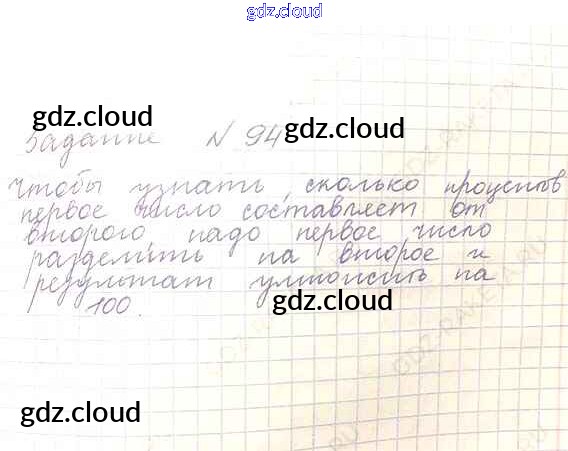 gdz.cloud
gdz.cloud
Задание N 94
gdz.cloud
Чтобы узнать, сколько процентов
первое число составляет от
gdz.cloud
второго надо первое число
разделить на второе и
результат умножить на
gdz.cloud
100.
gdz.cloud